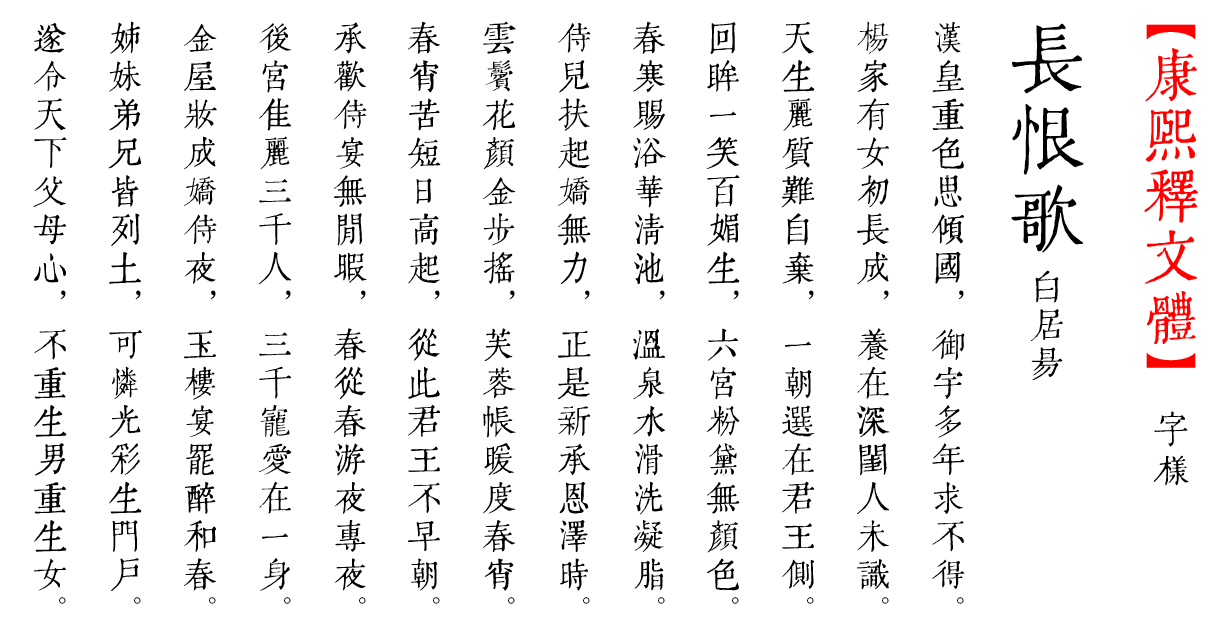 【康熙釋文體】 字樣
長恨歌 白居易
漢皇重色思傾國，御宇多年求不得。
楊家有女初長成，養在深閨人未識。
天生麗質難自棄，一朝選在君王側。
回眸一笑百媚生，六宮粉黛無顏色。
春寒賜浴華清池，溫泉水滑洗凝脂。
侍兒扶起嬌無力，正是新承恩澤時。
雲鬢花顏金步搖，芙蓉帳暖度春宵。
春宵苦短日高起，從此君王不早朝。
承歡侍宴無閒暇，春從春游夜專夜。
後宮佳麗三千人，三千寵愛在一身。
金屋妝成嬌侍夜，玉樓宴罷醉和春。
姊妹弟兄皆列土，可憐光彩生門戶。
遂令天下父母心，不重生男重生女。